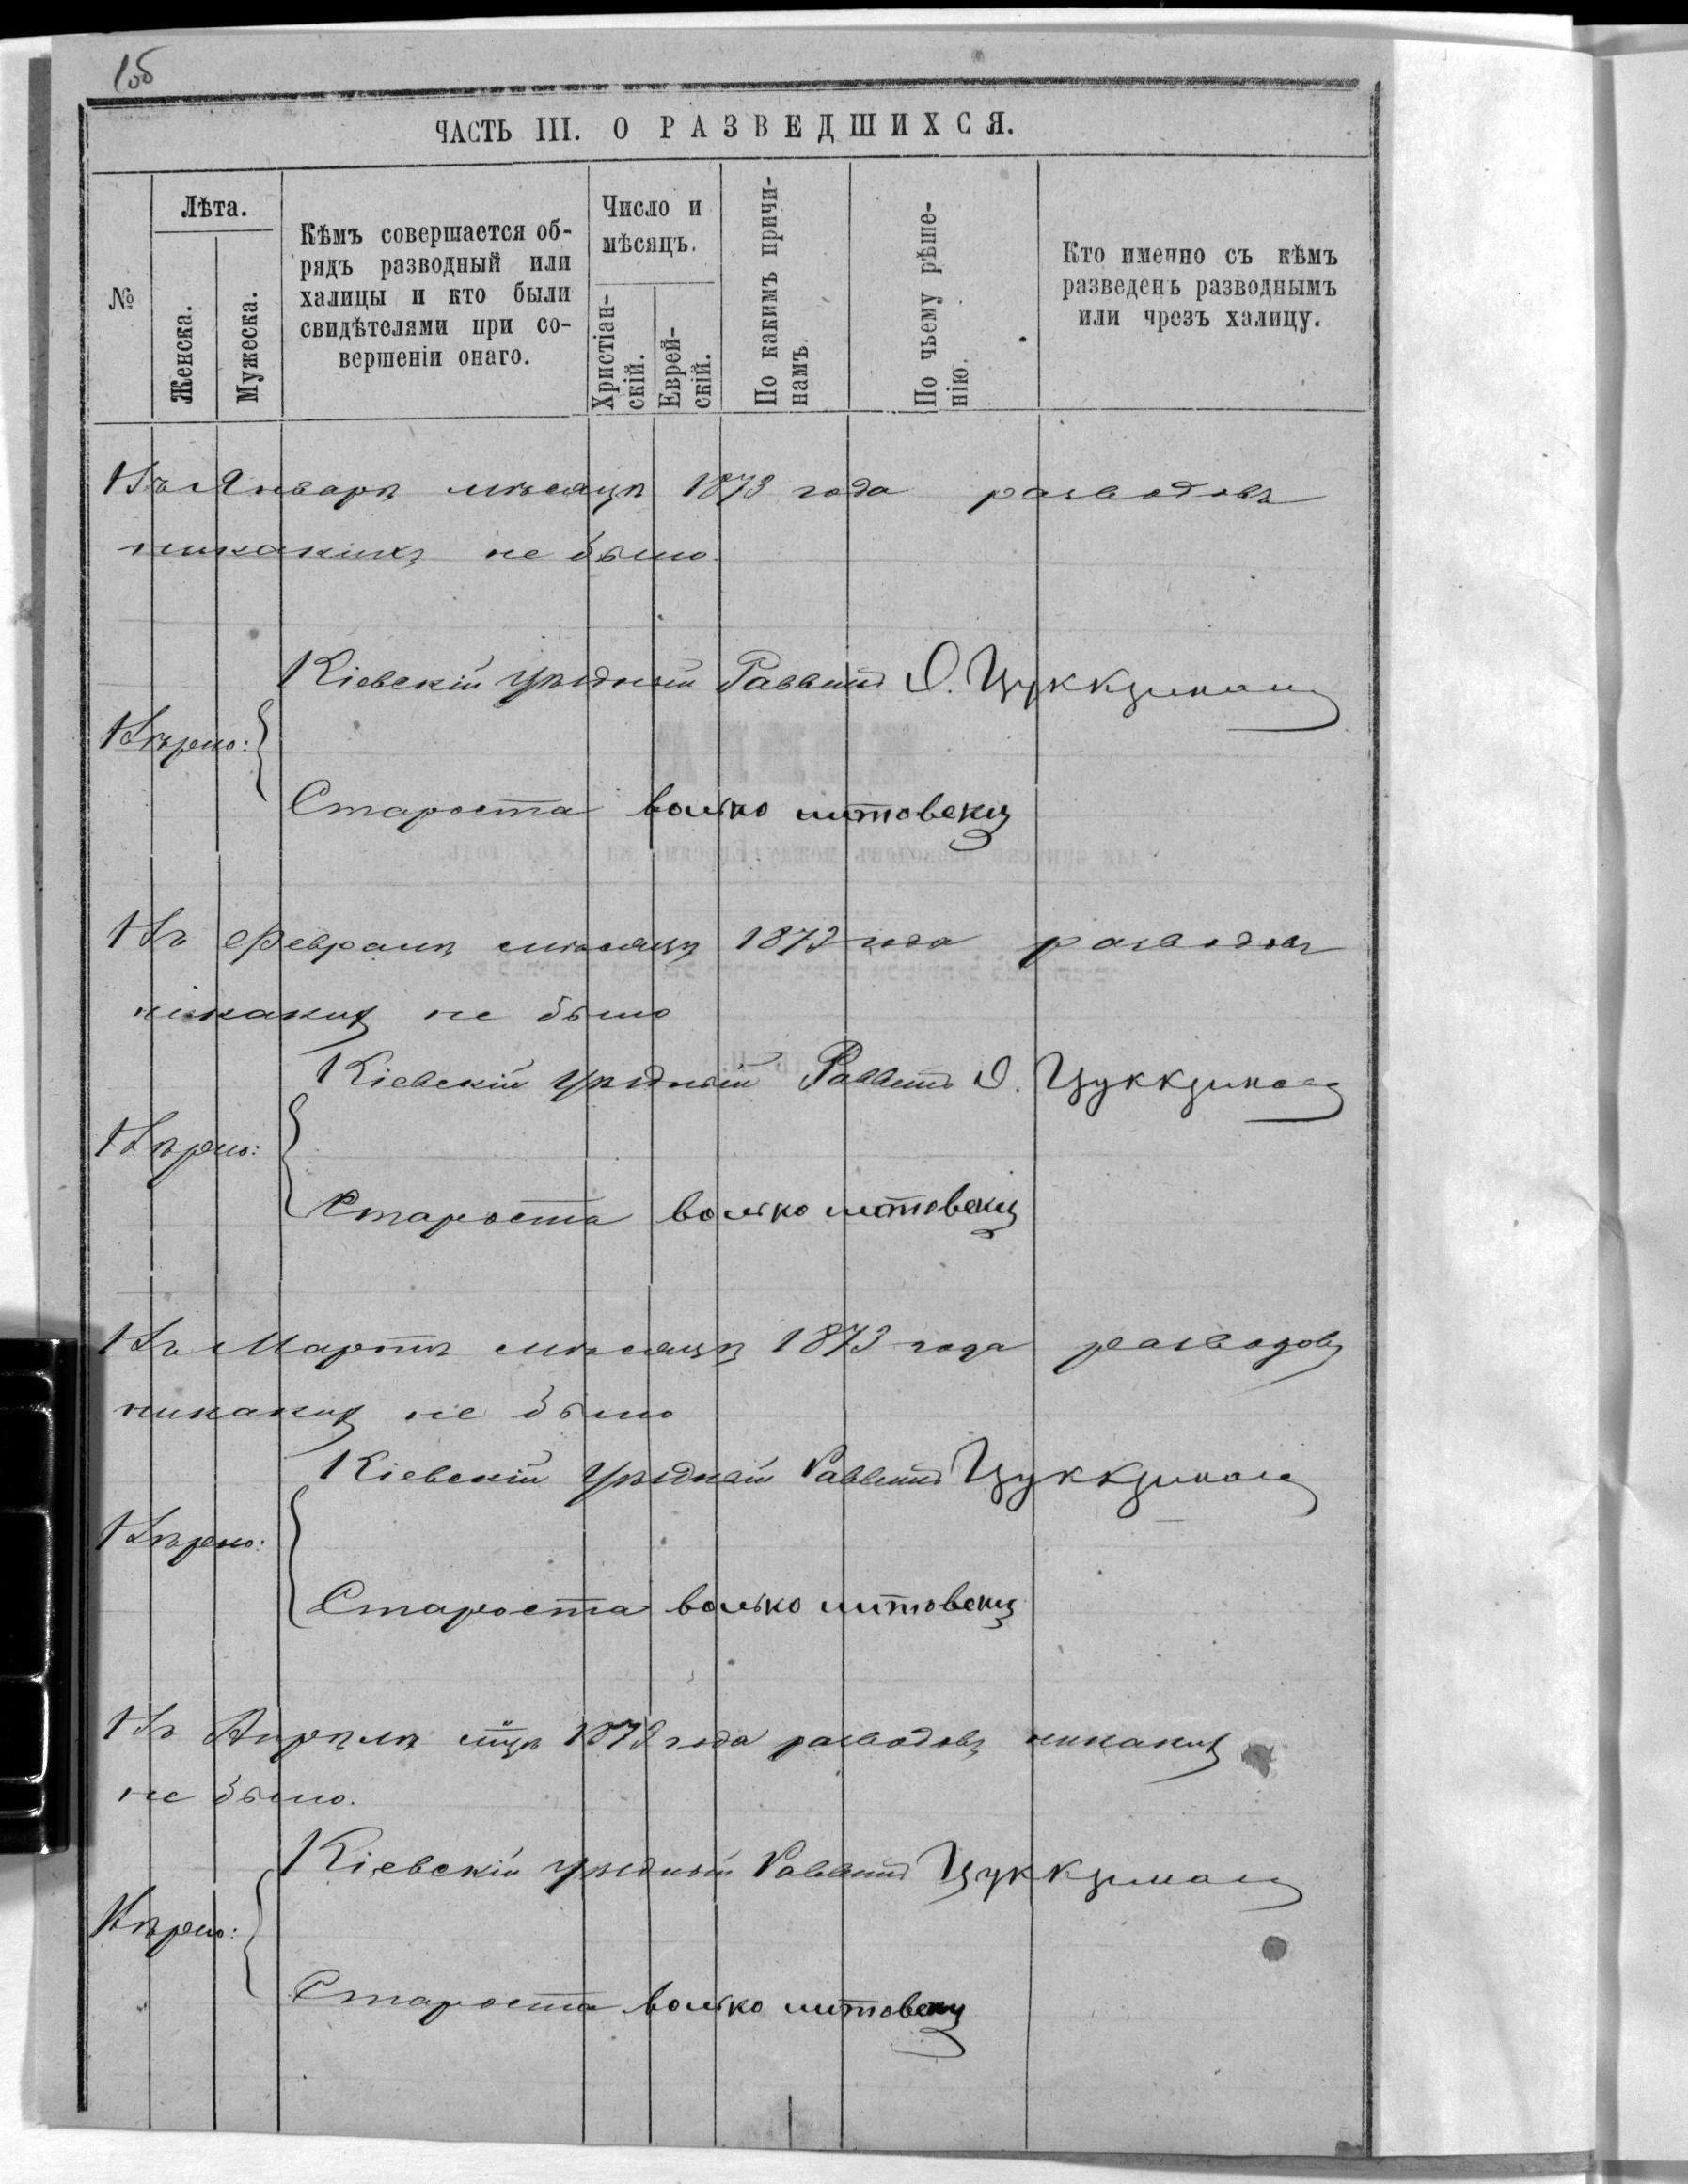 ЧАСТЬ III. О РАЗВЕДШИХСЯ.
№
Лѣта.
Женска.
Мужеска.
Кѣмъ совершается об-
рядъ разводный или
халицы и кто были
свидѣтелями при со-
вершеніи онаго.
Число и
мѣсяцъ.
Христіан-
скій.
Еврей-
скій.
По какимъ причи-
намъ.
По чьему рѣше-
нію.
Кто именно съ кѣмъ
разведенъ разводнымъ
или чрезъ халицу.
Въ Январѣ мѣсяцѣ 1873 года разводовъ
никакихъ не было.
Кіевскій уѣздный Раввинъ
Вѣрно:
Староста волько литовецъ
Въ Февралѣ мѣсяцѣ 1873 года разводовъ
никакихъ не было
Кіевскій уѣздный Раввинъ
Вѣрно:
Староста волько литовецъ
Въ Мартѣ мѣсяцѣ 1873 года разводовъ
никакихъ не было
Кіевскій уѣздный Раввинъ
Вѣрно:
Староста волько литовецъ
Въ Апрѣлѣ мцѣ 1873 года разводовъ никакихъ
не было.
Кіевскій уѣздный Раввинъ
Вѣрно:
Староста волько литовецъ